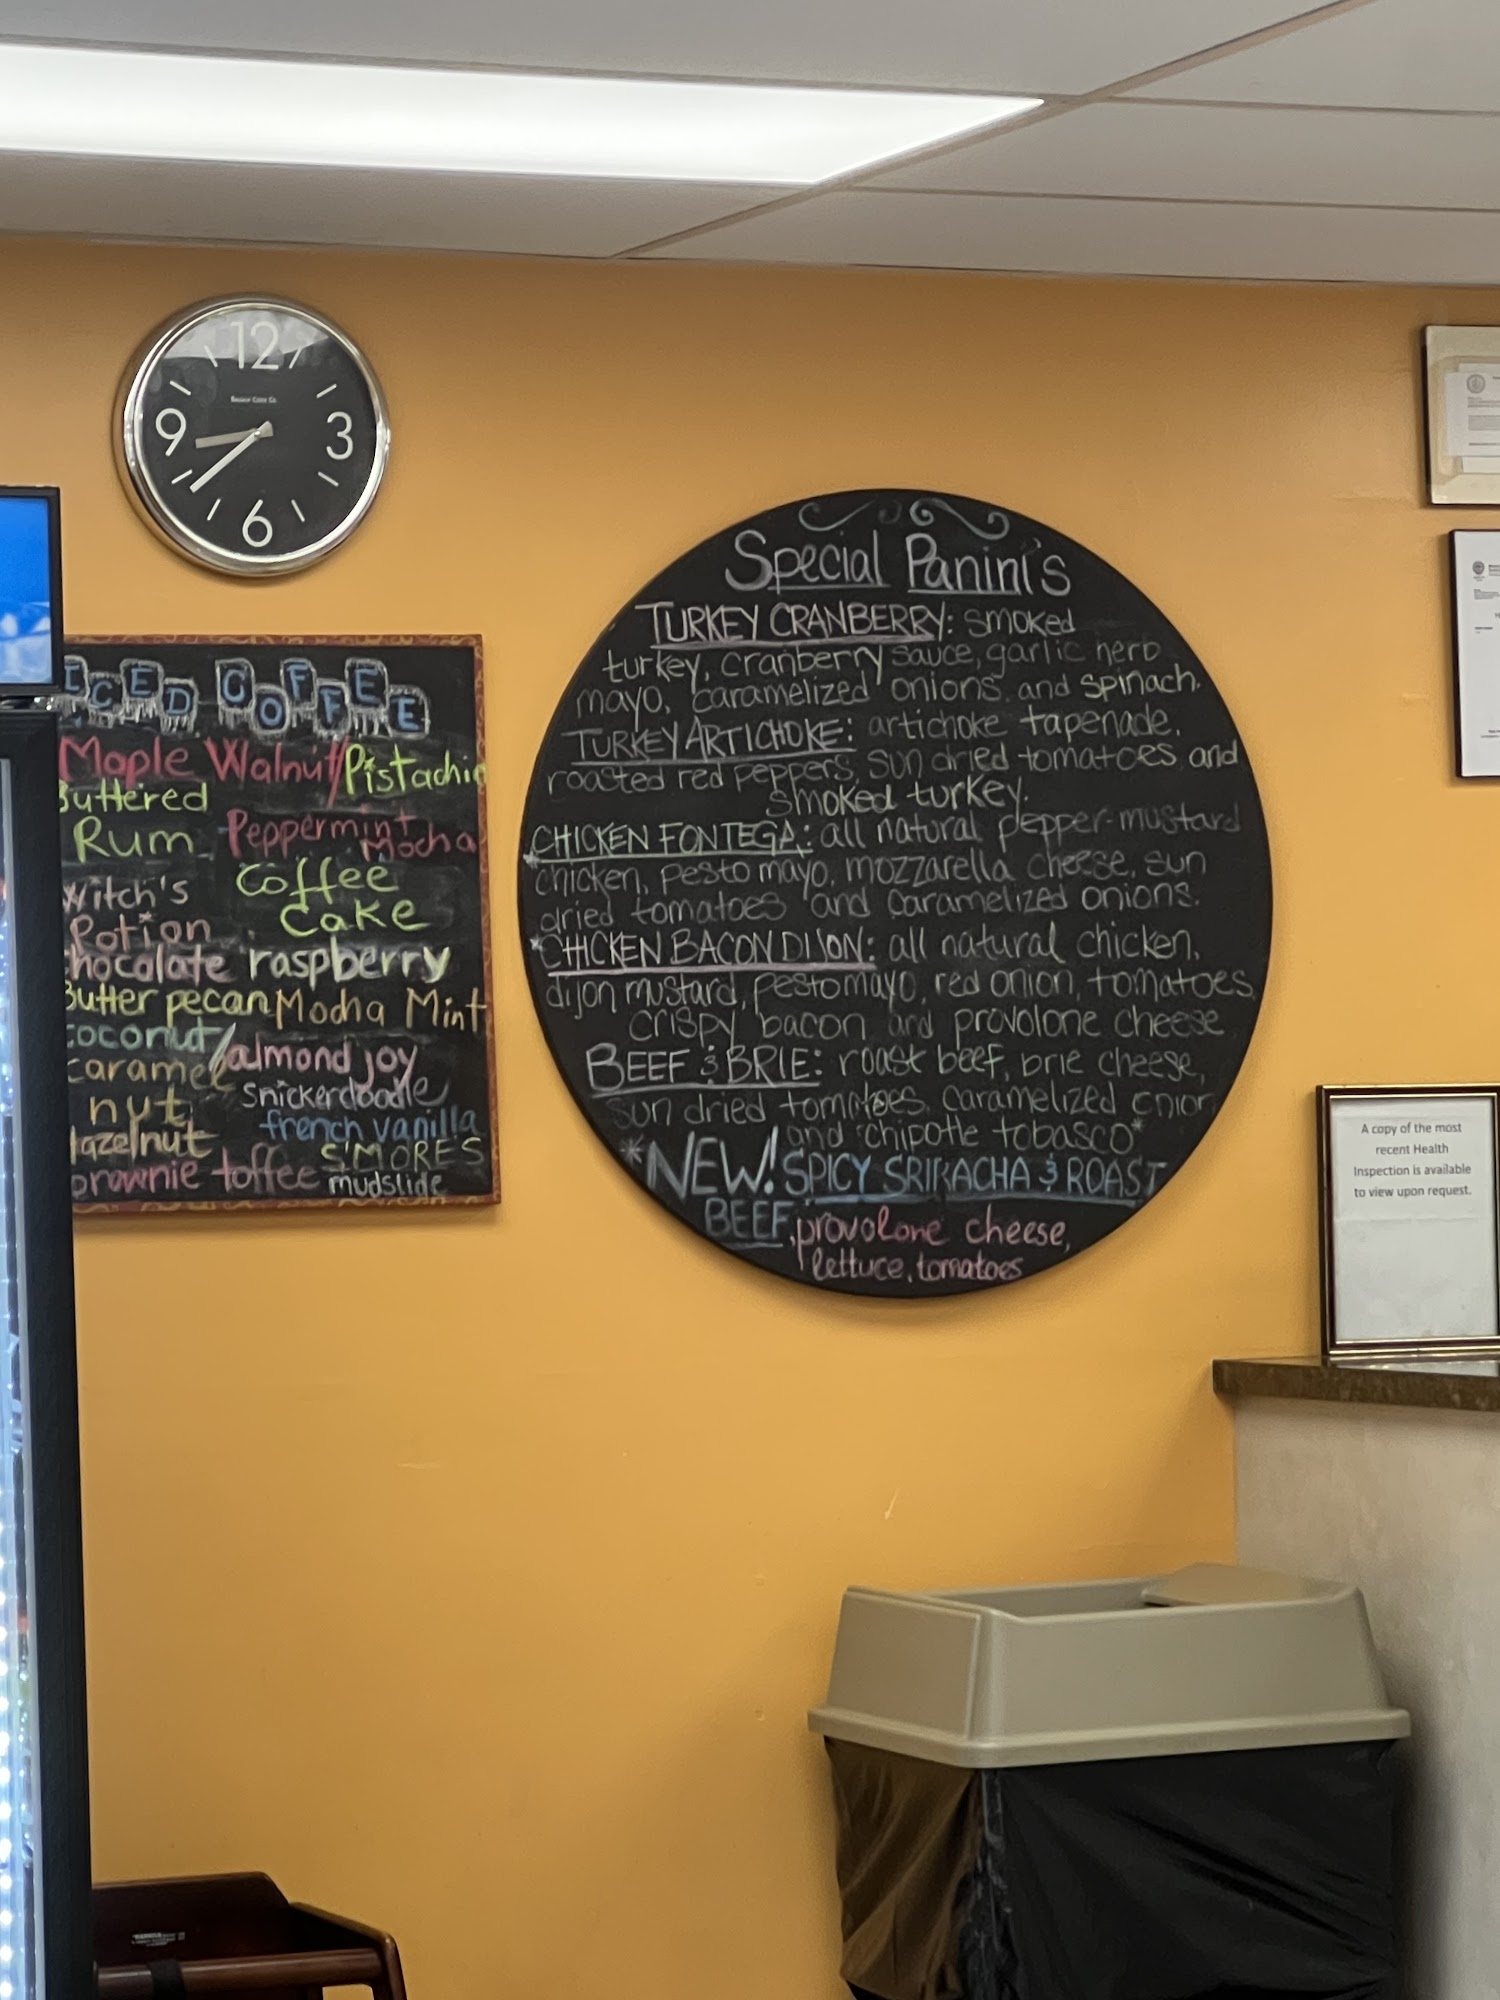 12
3
6
9
ICED COFFEE
Maple Walnut/Pistachio
Buttered
Rum
Peppermint
Mocha
Coffee
Cake
Witch's
Potion
chocolate raspberry
Butter pecan Mocha Mint
coconut/almond joy
caramel snickerdoodle
nut french vanilla
Hazelnut S'MORES
brownie toffee mudslide
Special Panini's
TURKEY CRANBERRY: smoked
turkey, cranberry sauce, garlic herb
mayo, caramelized onions and spinach.
TURKEY ARTICHOKE: artichoke tapenade,
roasted red peppers, sun dried tomatoes, and
smoked turkey.
CHICKEN FONTEGA: all natural pepper-mustard
chicken, pesto mayo, mozzarella cheese, sun
dried tomatoes and caramelized onions.
*CHICKEN BACON DIJON: all natural chicken,
dijon mustard, pesto mayo, red onion, tomatoes,
crispy bacon and provolone cheese
BEEF & BRIE: roast beef, brie cheese,
sun dried tomatoes, caramelized onion
and chipotle tobasco*
*NEW! SPICY SRIRACHA & ROAST
BEEF, provolone cheese,
lettuce, tomatoes
A copy of the most
recent Health
Inspection is available
to view upon request.